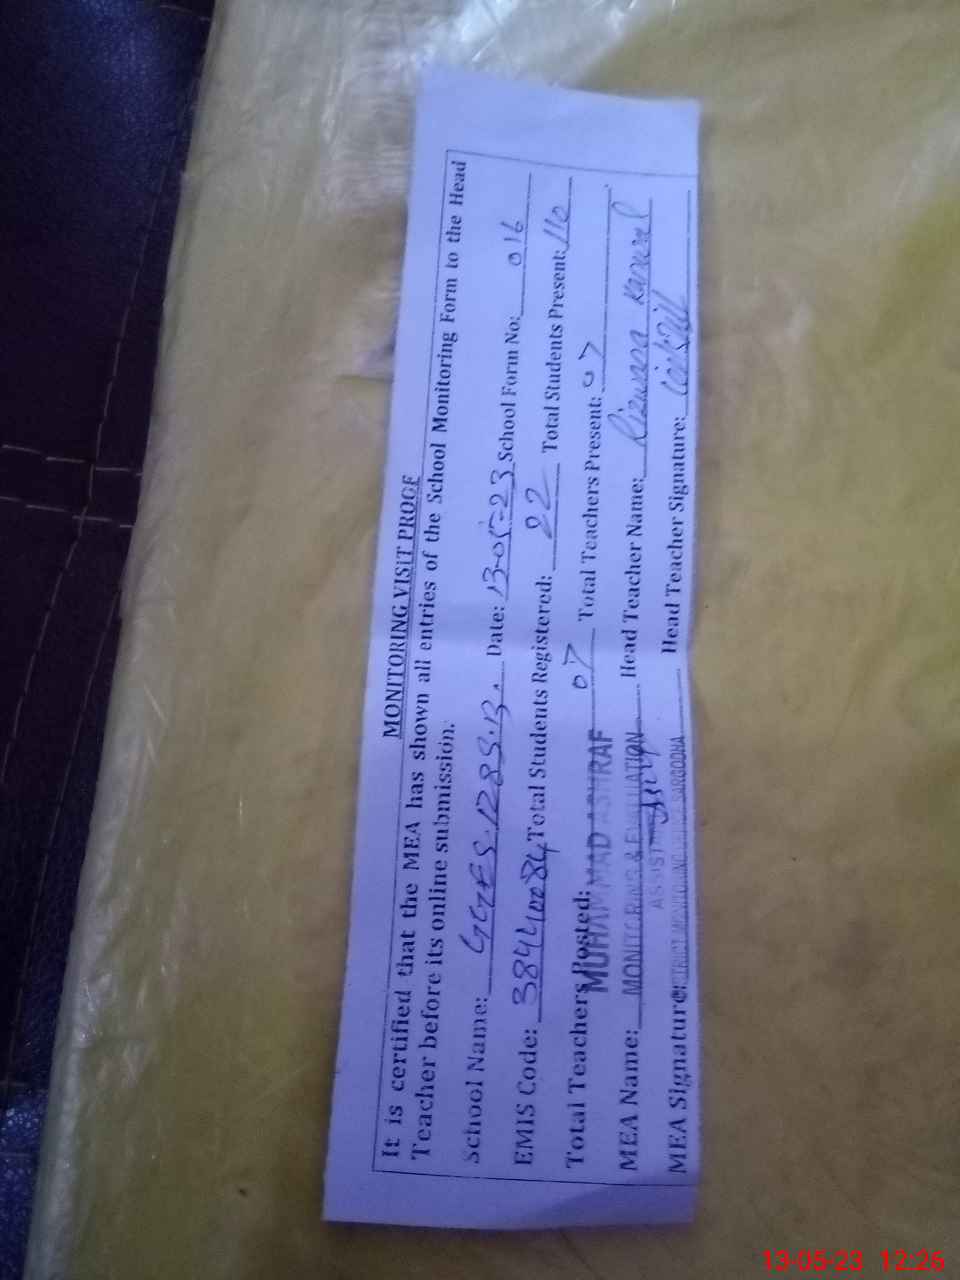 MONITORING VISIT PROOF
It is certified that the MEA has shown all entries of the School Monitoring Form to the Head
Teacher before its online submission.
School Name: GGES 128 S.B. Date: 13-05-23 School Form No: 016
EMIS Code: 38440084 Total Students Registered: Total Students Present: 110
Total Teachers Posted: 07 Total Teachers Present: 07
MUHAMMAD ASHRAF
MEA Name: MONITORING & EVALUATION Head Teacher Name: Rizwana Kanwal
ASSISTANT
MEA Signature: DISTRICT MONITORING OFFICE SARGODHA Head Teacher Signature:
13-05-23 12:26